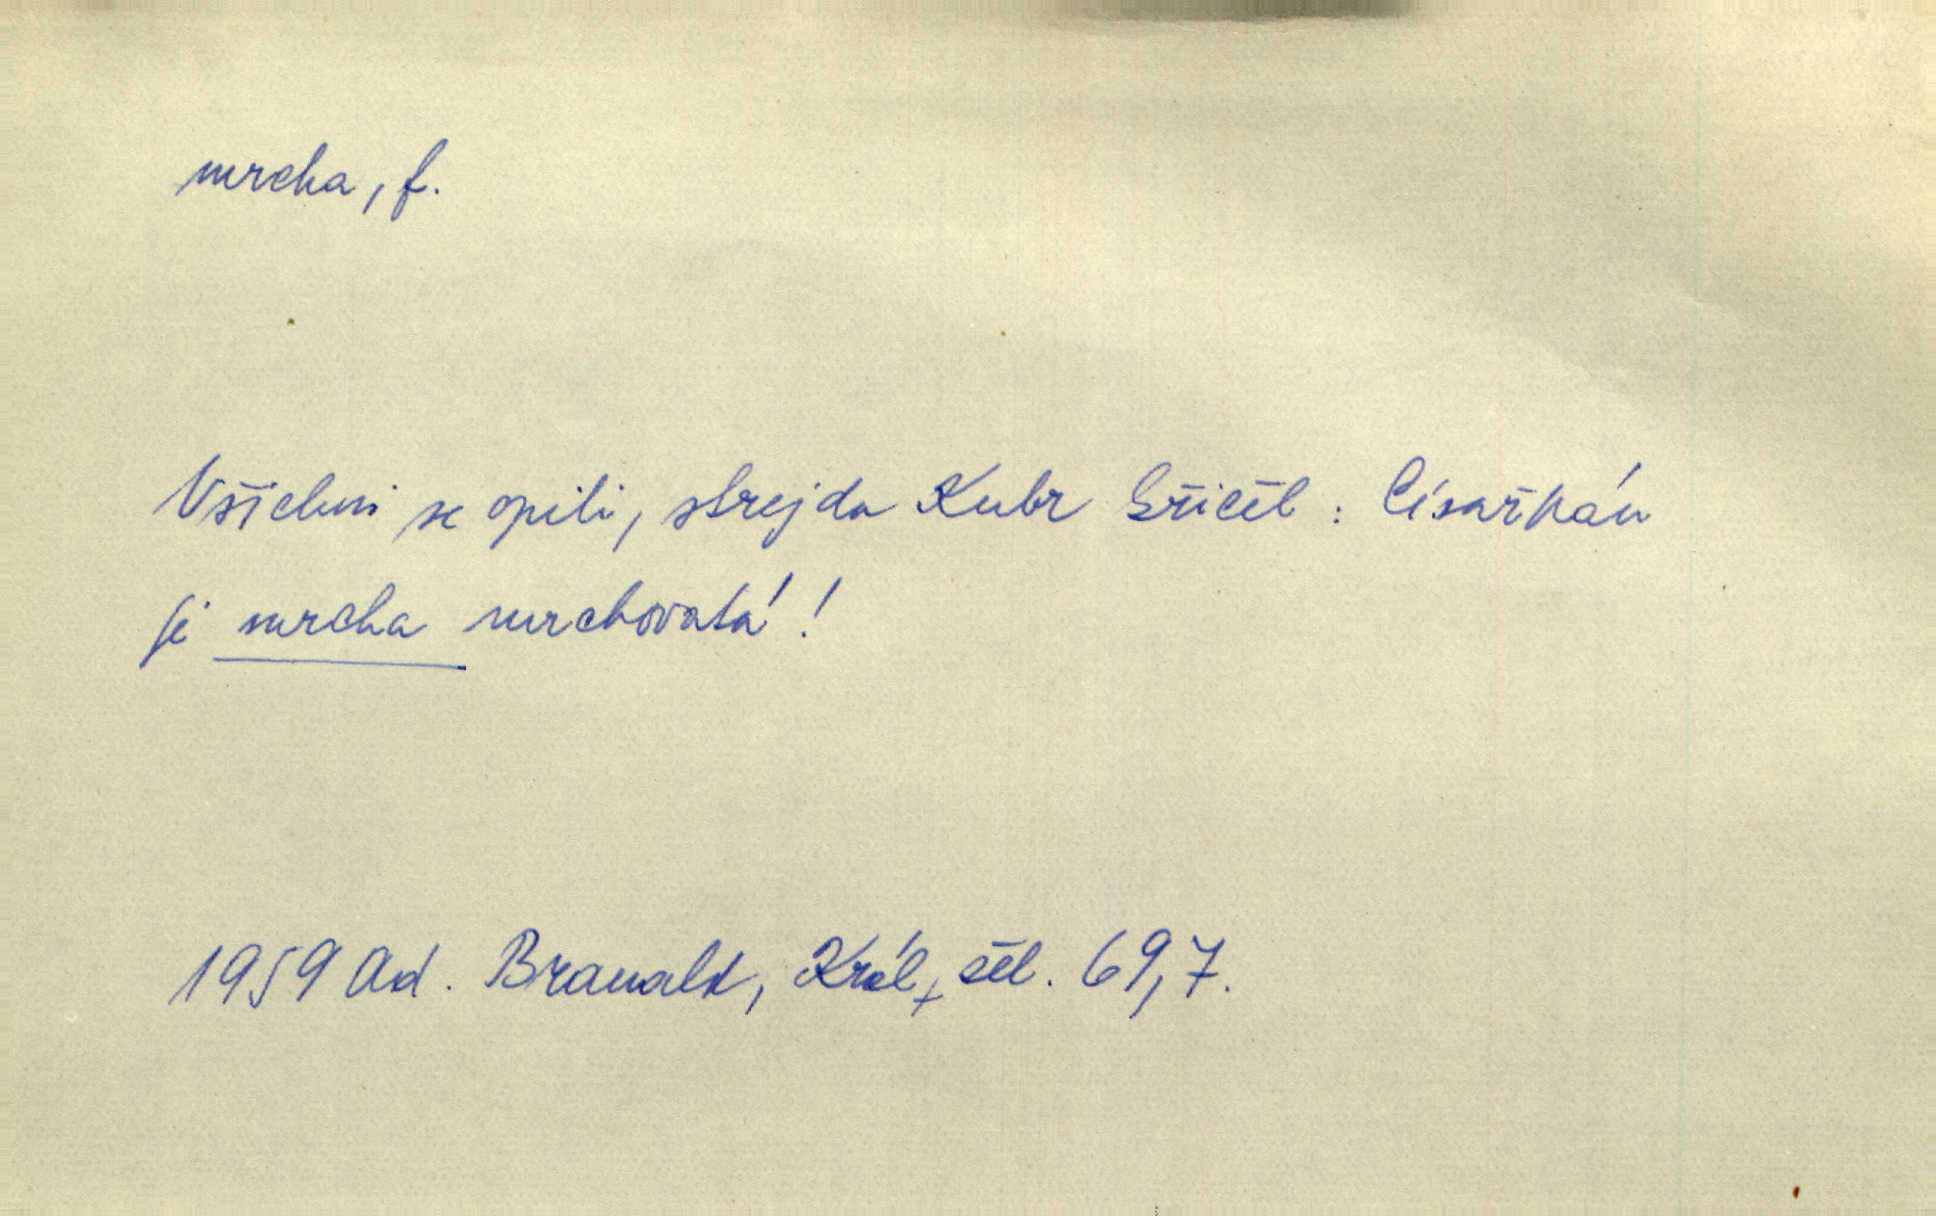 mrcha, f.
Všichni se opili, strejda Kubr křičel: Císařpán
je mrcha mrchovatá!
1959 Ad. Branald, Král, žel. 69,7.